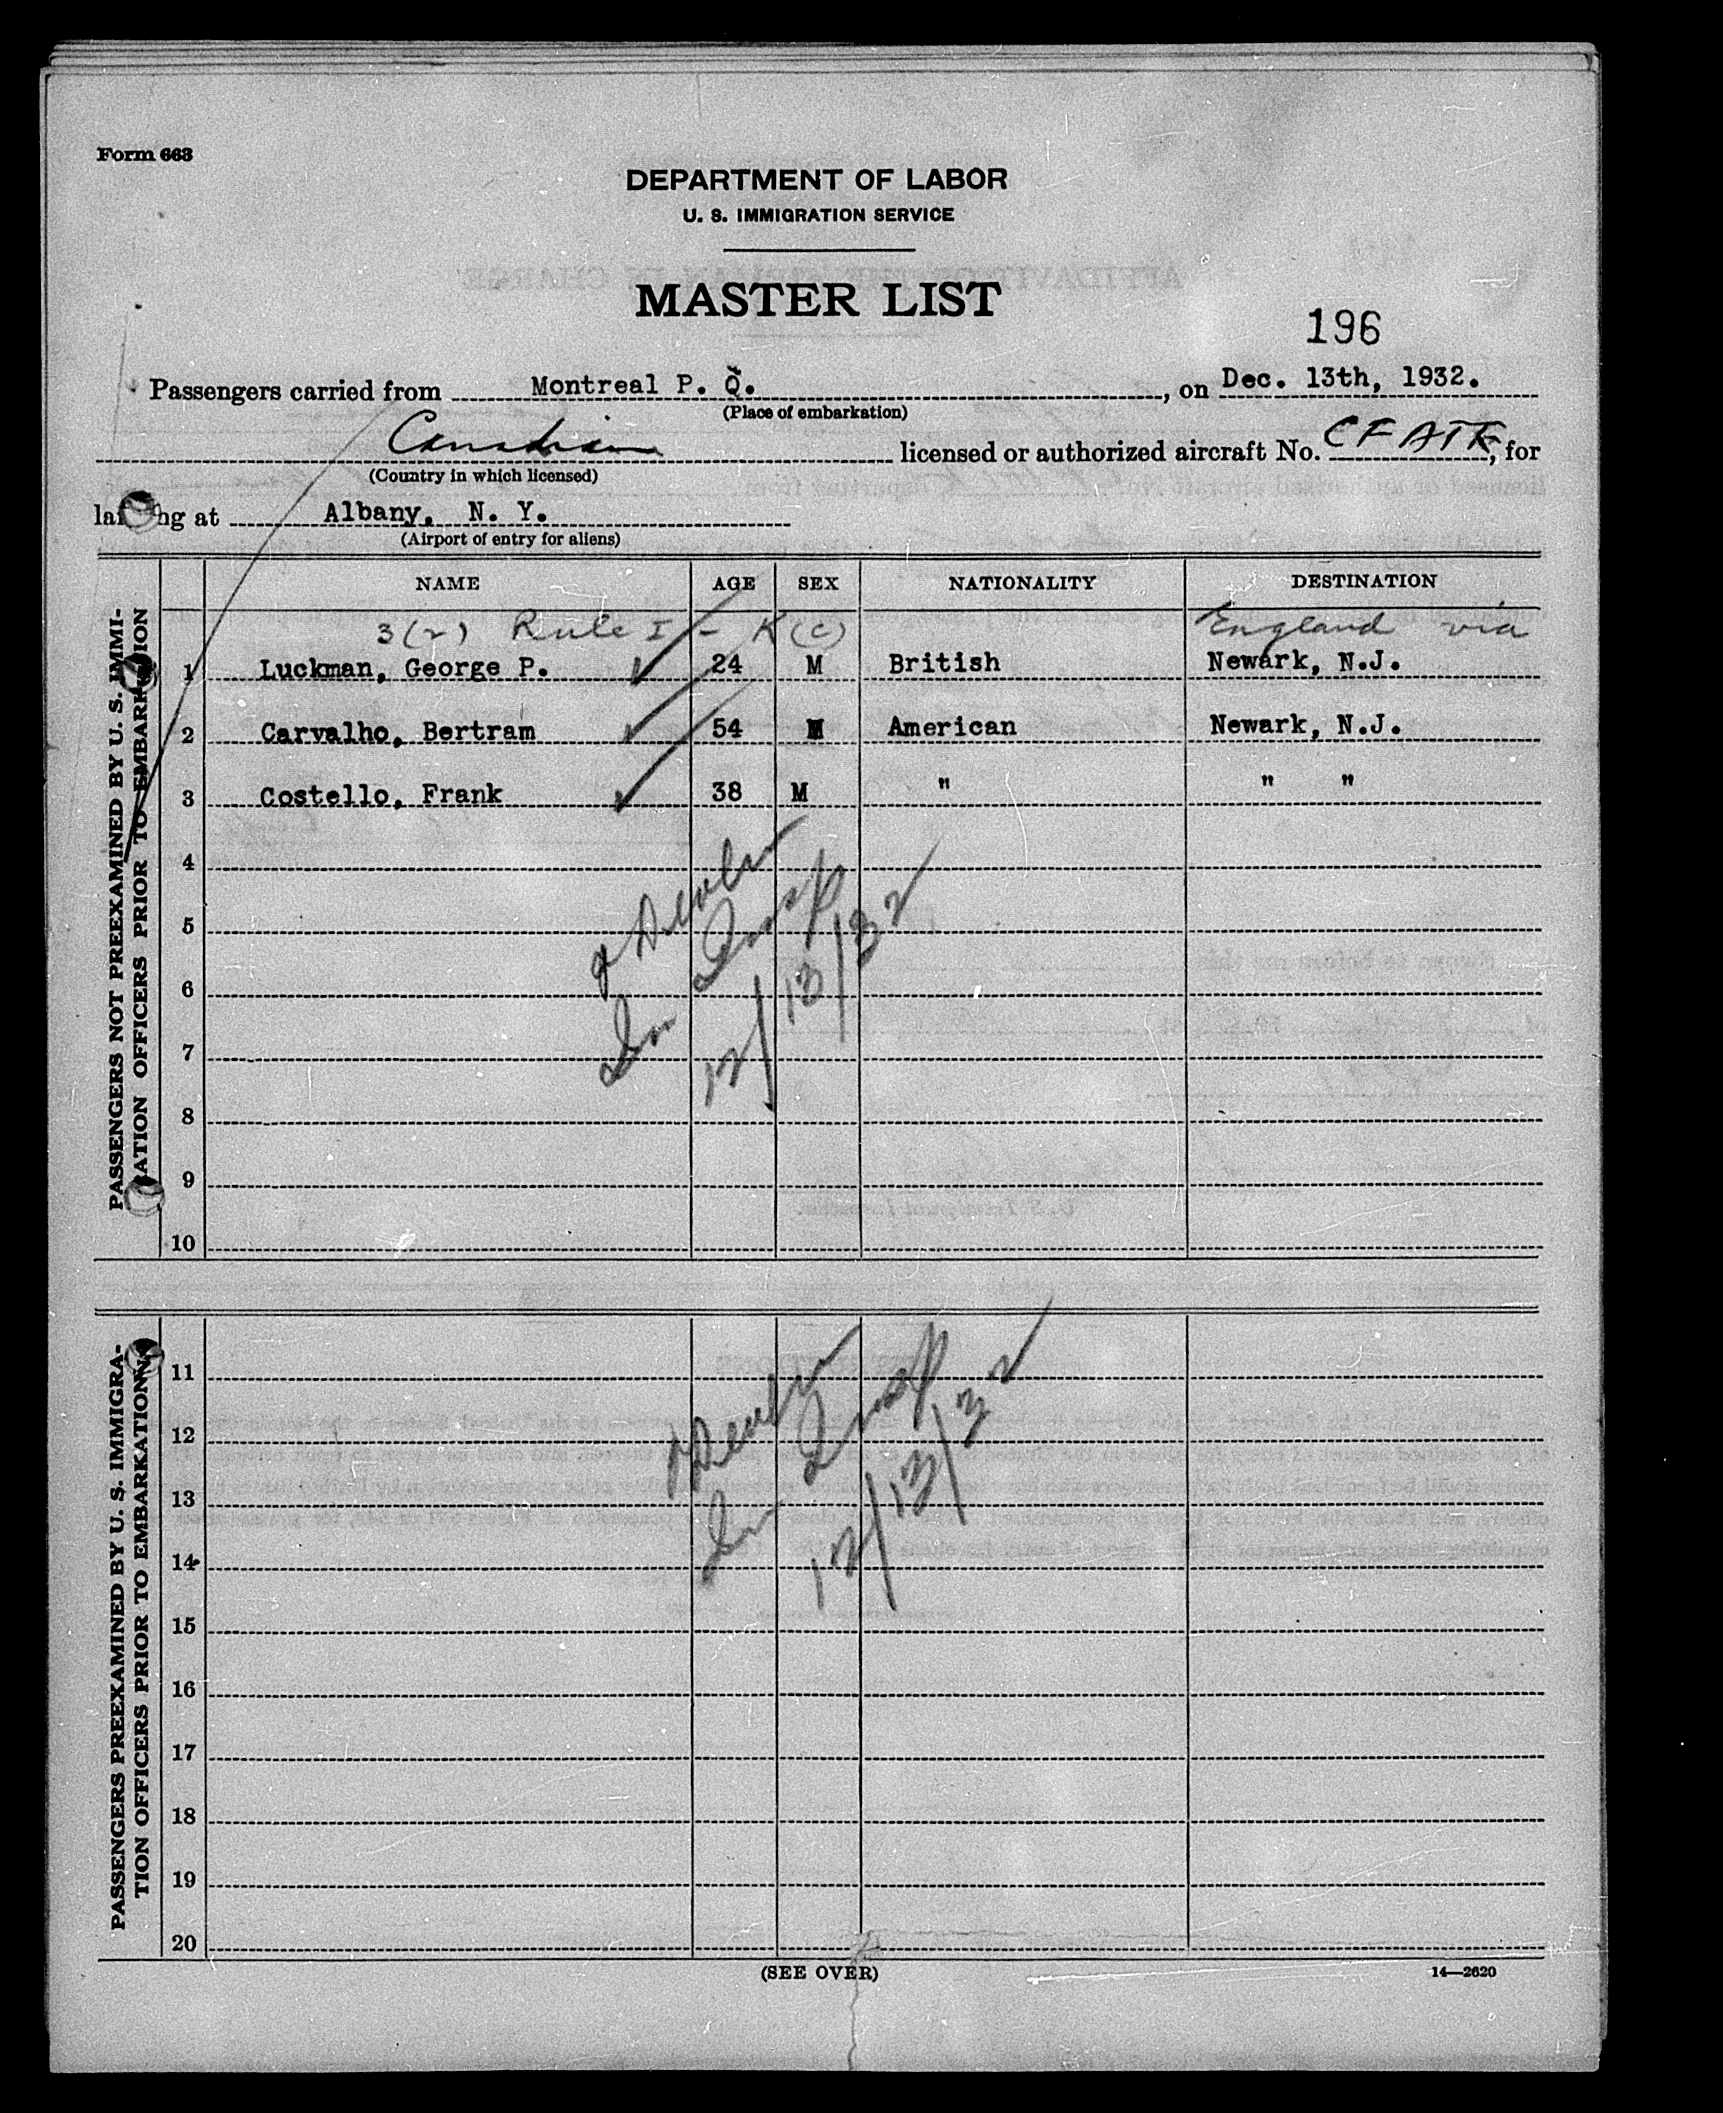 Form 663
DEPARTMENT OF LABOR
U. S. IMMIGRATION SERVICE
MASTER LIST
196
Passengers carried from Montreal P. Q., on Dec. 13th, 1932.
(Place of embarkation)
Canadian licensed or authorized aircraft No. CF ATK, for
(Country in which licensed)
landing at Albany, N. Y.
(Airport of entry for aliens)
NAME AGE SEX NATIONALITY DESTINATION
3(2) Rule I - K(c) England via
1 Luckman, George P. 24 M British Newark, N.J.
2 Carvalho, Bertram 54 M American Newark, N.J.
3 Costello, Frank 38 M " " "
4
5
6
7
8
9
10
PASSENGERS NOT PREEXAMINED BY U. S. IMMI-
GRATION OFFICERS PRIOR TO EMBARKATION
Devlin
Im Insp
12/13/32
11
12
13
14
15
16
17
18
19
20
PASSENGERS PREEXAMINED BY U. S. IMMIGRA-
TION OFFICERS PRIOR TO EMBARKATION
Devlin
Im Insp
12/13/32
(SEE OVER)
14—2620